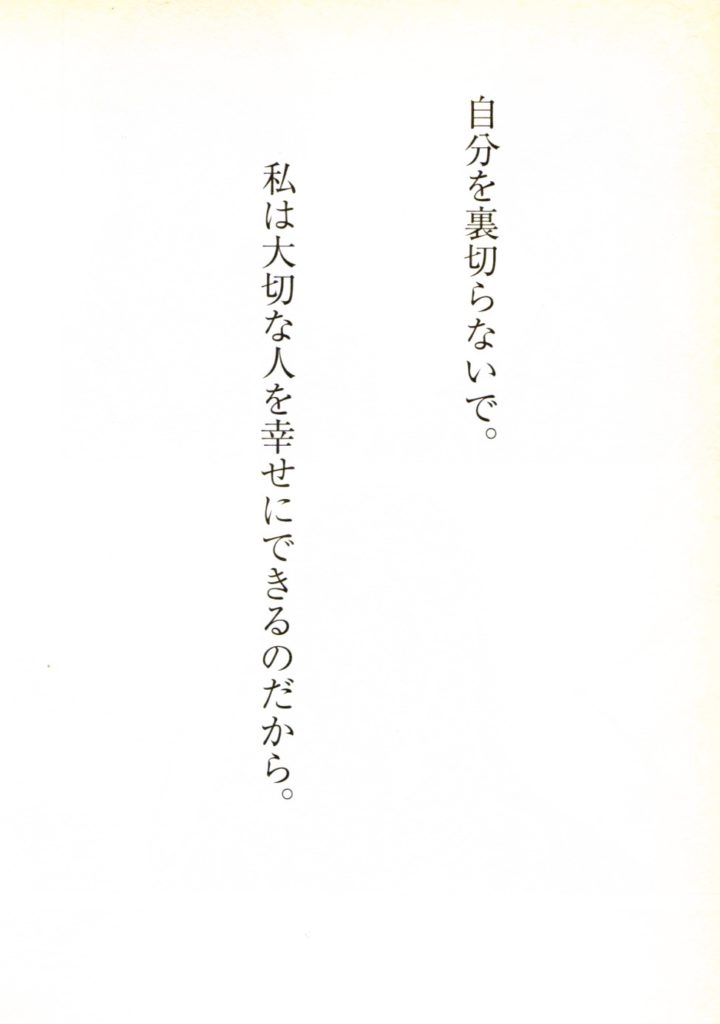 自分を裏切らないで。
私は大切な人を幸せにできるのだから。